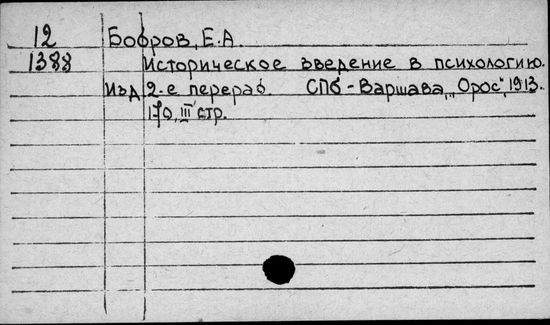 12 Бобров, Е.А.
1388 Историческое введение в психологию.
Изд. 2-е перераб. СПб-Варшава, „Орос", 1913.
170, III стр.